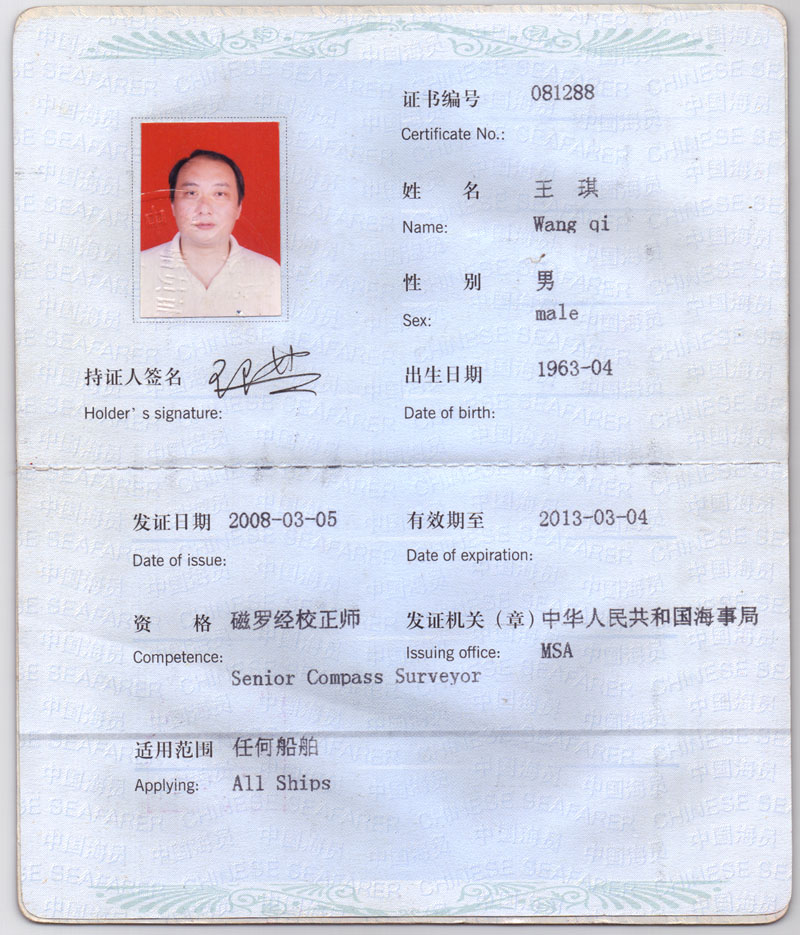 证书编号 081288
Certificate No.:
姓 名 王 琪
Name: Wang qi
性 别 男
Sex: male
持证人签名
Holder's signature:
出生日期 1963-04
Date of birth:
发证日期 2008-03-05
Date of issue:
有效期至 2013-03-04
Date of expiration:
资 格 磁罗经校正师
Competence:
Senior Compass Surveyor
发证机关（章）中华人民共和国海事局
Issuing office: MSA
适用范围 任何船舶
Applying: All Ships
中国海员
CHINESE SEAFARER